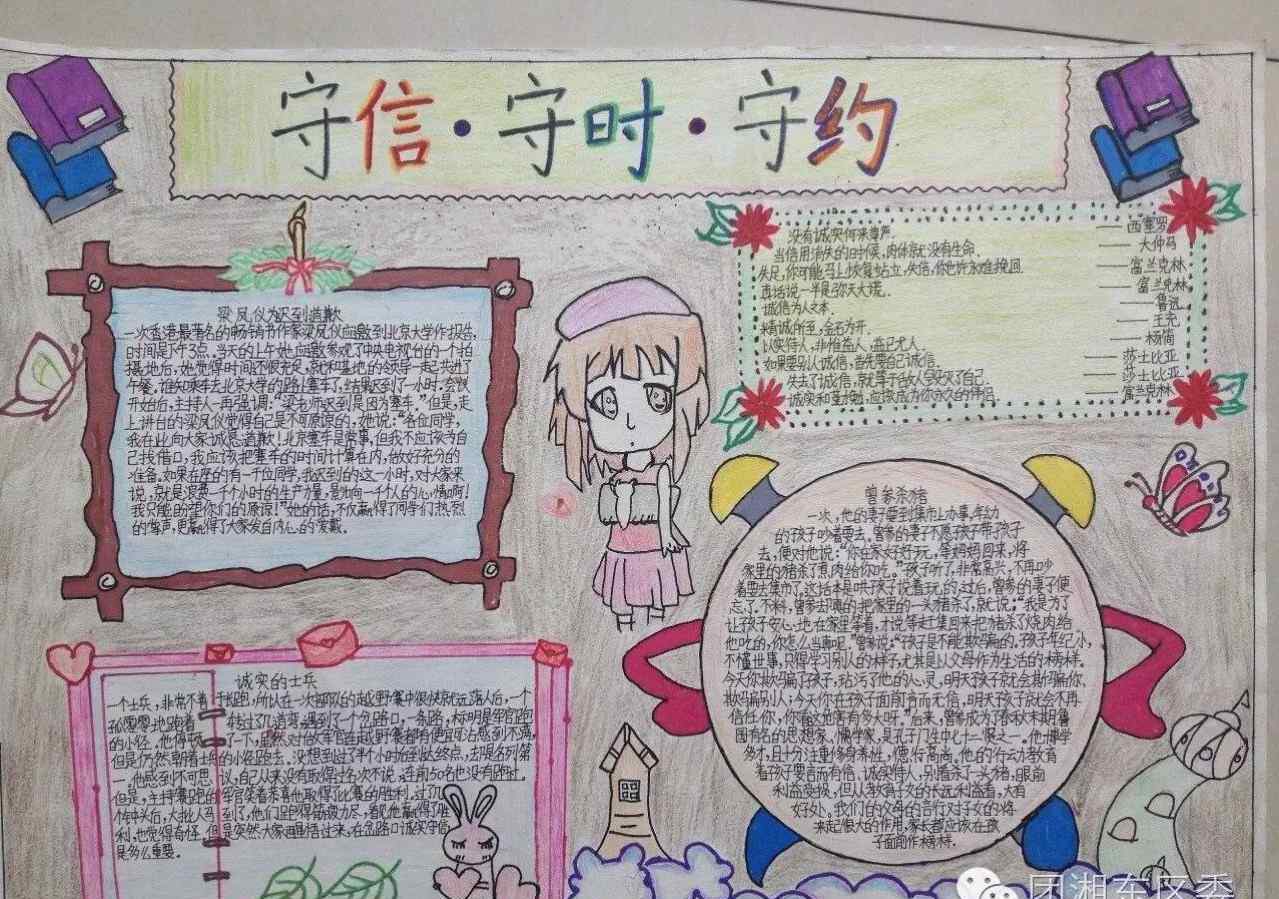 守信·守时·守约
梁凤仪为迟到道歉
一次香港最著名的畅销书作家梁凤仪应邀到北京大学作报告,
时间是下午3点。当天的上午她应邀参观了中央电视台的一个拍
摄地后,她觉得时间还很充足,就和基地的领导一起共进了
午餐。谁知乘车去北京大学的路上塞车了,结果迟到了一小时。
开始后,主持人一再强调:“梁老师迟到是因为塞车。”但是,走
上讲台的梁凤仪觉得自己是不可原谅的,她说:“各位同学,
我在此向大家诚恳道歉!北京塞车是常事,但我不应该为自
己找借口,我应该把塞车的时间计算在内,做好充分的
准备。如果在座的有一千位同学,我迟到的这一小时,对大家来
说,就是浪费一千个小时的生产力量,影响一千个人的心情啊!
我只能盼望你们的原谅!”她的话,不仅赢得了同学们热烈
的掌声,更赢得了大家发自内心的爱戴。
没有诚实何来尊严。 —— 西塞罗
当信用消失的时候,肉体就没有生命。 —— 大仲马
失足,你可能马上恢复站立,失信,你也许永难挽回。 —— 富兰克林
再话说一半是弥天大谎。 —— 富兰克林
诚信为人之本。 —— 鲁迅
精诚所至,金石为开。 —— 王充
以实待人,非惟益人,益己尤人。 —— 杨简
如果要别人诚信,首先要自己诚信。 —— 莎士比亚
失去了诚信,就等于敌人毁灭了自己。 —— 莎士比亚
诚实和勤勉,应该成为你永久的伴侣。 —— 富兰克林
曾参杀猪
一次,他的妻子要到集市上办事,年幼
的孩子吵着要去。曾参的妻子不愿孩子带了孩子
去,便对他说:“你在家好好玩,等妈妈回来,将
家里的猪杀了煮肉给你吃。”孩子听了,非常高兴,不再吵
着要去集市了。这话本是哄孩子说着玩的,过后,曾参的妻子便
忘了。不料,曾参却真的把家里的一头猪杀了,就说:“我是为了
让孩子安心地在家里等着,才说等赶集回来把猪杀了烧肉给
他吃的,你怎么当真呢。”曾参说:“孩子是不能欺骗的。孩子年纪小,
不懂世事,只得学习别人的样子,尤其是以父母作为生活的榜样。
今天你欺骗了孩子,玷污了他的心灵,明天孩子就会欺骗你、
欺骗别人;今天你在孩子面前言而无信,明天孩子就会不再
信任你,你看这危害有多大呀。”后来,曾参成为了春秋末期鲁
国有名的思想家、儒学家,是孔子门生中七十二贤之一。他博学
多才,且十分注重修身养性,德行高尚。他的行动教育
着孩子要言而有信、诚实待人,别看杀了一头猪,眼前
利益受损,但从教育子女的长远利益看,大有
好处。我们的父母的言行对子女的将
来起很大的作用,家长都应该在孩
子面前作榜样。
诚实的士兵
一个士兵,非常不善于长跑,所以在一次部队的越野赛中很快就远落人后,一个
孤零零地跑着 转过了几道弯,遇到了一个岔路口,一条路,标明是军官跑
的小径,他停顿了一下,虽然对做军官连越野赛都有便宜可沾感到不满,
但是仍然朝着士兵的小径跑去。没想到过了半个小时后到达终点,却是名列第
一。他感到不可思议,自己从来没有取得过名次不说,连前50名也没有跑过。
但是,主持赛跑的军官笑着恭喜他取得了比赛的胜利。过了几
个钟头后,大批人马到了,他们跑得筋疲力尽,看见他赢得了胜
利,也觉得奇怪。但是突然大家醒悟过来,在岔路口诚实守信,
是多么重要。
团湘东区委